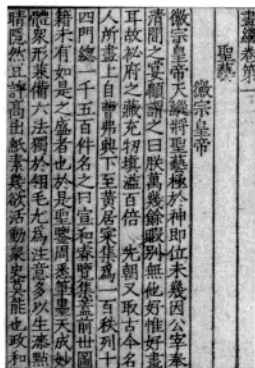 畫繼卷第一
聖藝
徽宗皇帝
徽宗皇帝天縱將聖藝極於神即位未幾因公宰奉
清閒之宴顧謂之曰朕萬幾餘暇別無他好惟好畫
耳故祕府之藏充牣填溢百倍先朝又取古今名
人所畫上自曹弗興下至黃居寀集為一百秩列十
四門總一千五百件名之曰宣和睿覽集蓋前世圖
籍未有如是之盛者也於是聖鑒周悉筆墨天成妙
體衆形兼備六法獨於翎毛尤為注意多以生漆點
睛隱然豆許高出紙素幾欲活動衆史莫能也政和